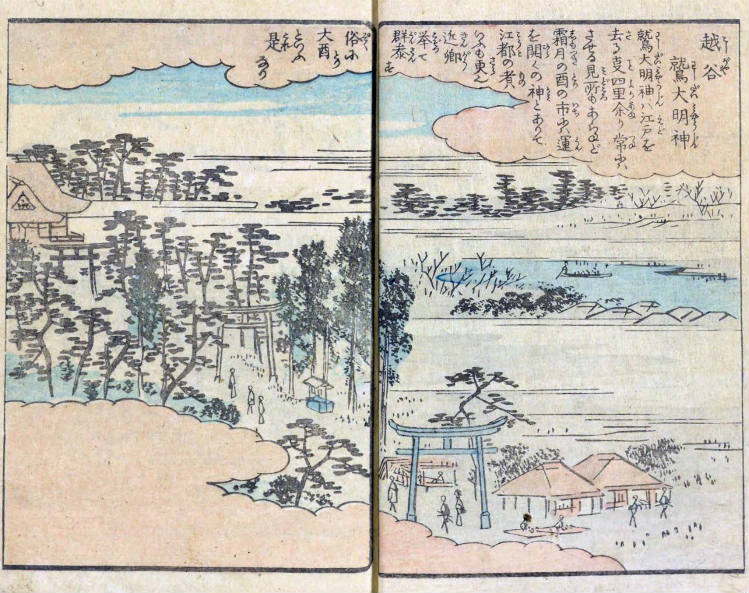 越谷
鷲大明神
鷲大明神ハ江戸を
去る支四里余り常にハ
させる見所もあらねど
霜月の酉の市にハ運
を開くの神とて
江都の者ハ
いふも更也
近郷
挙て
群参す
俗に
大酉
といふ
是
なり